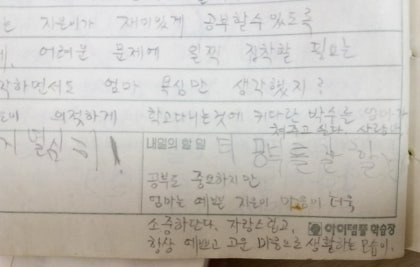 는 지은이가 재미있게 공부할수 있도록
어려운 문제에 일찍 집착할 필요는
작하면서도 엄마 욕심만 생각했지?
의젓하게 학교다니는것에 커다란 박수를 엄마가
쳐주고 싶다. 사랑해
열심히!
내일의 할 일
공부도 중요하지만
엄마는 예쁜 지은이 마음이 더욱
소중하단다. 자랑스럽고,
항상 예쁘고 고운 마음으로 생활하는 모습이.
아이템풀 학습장